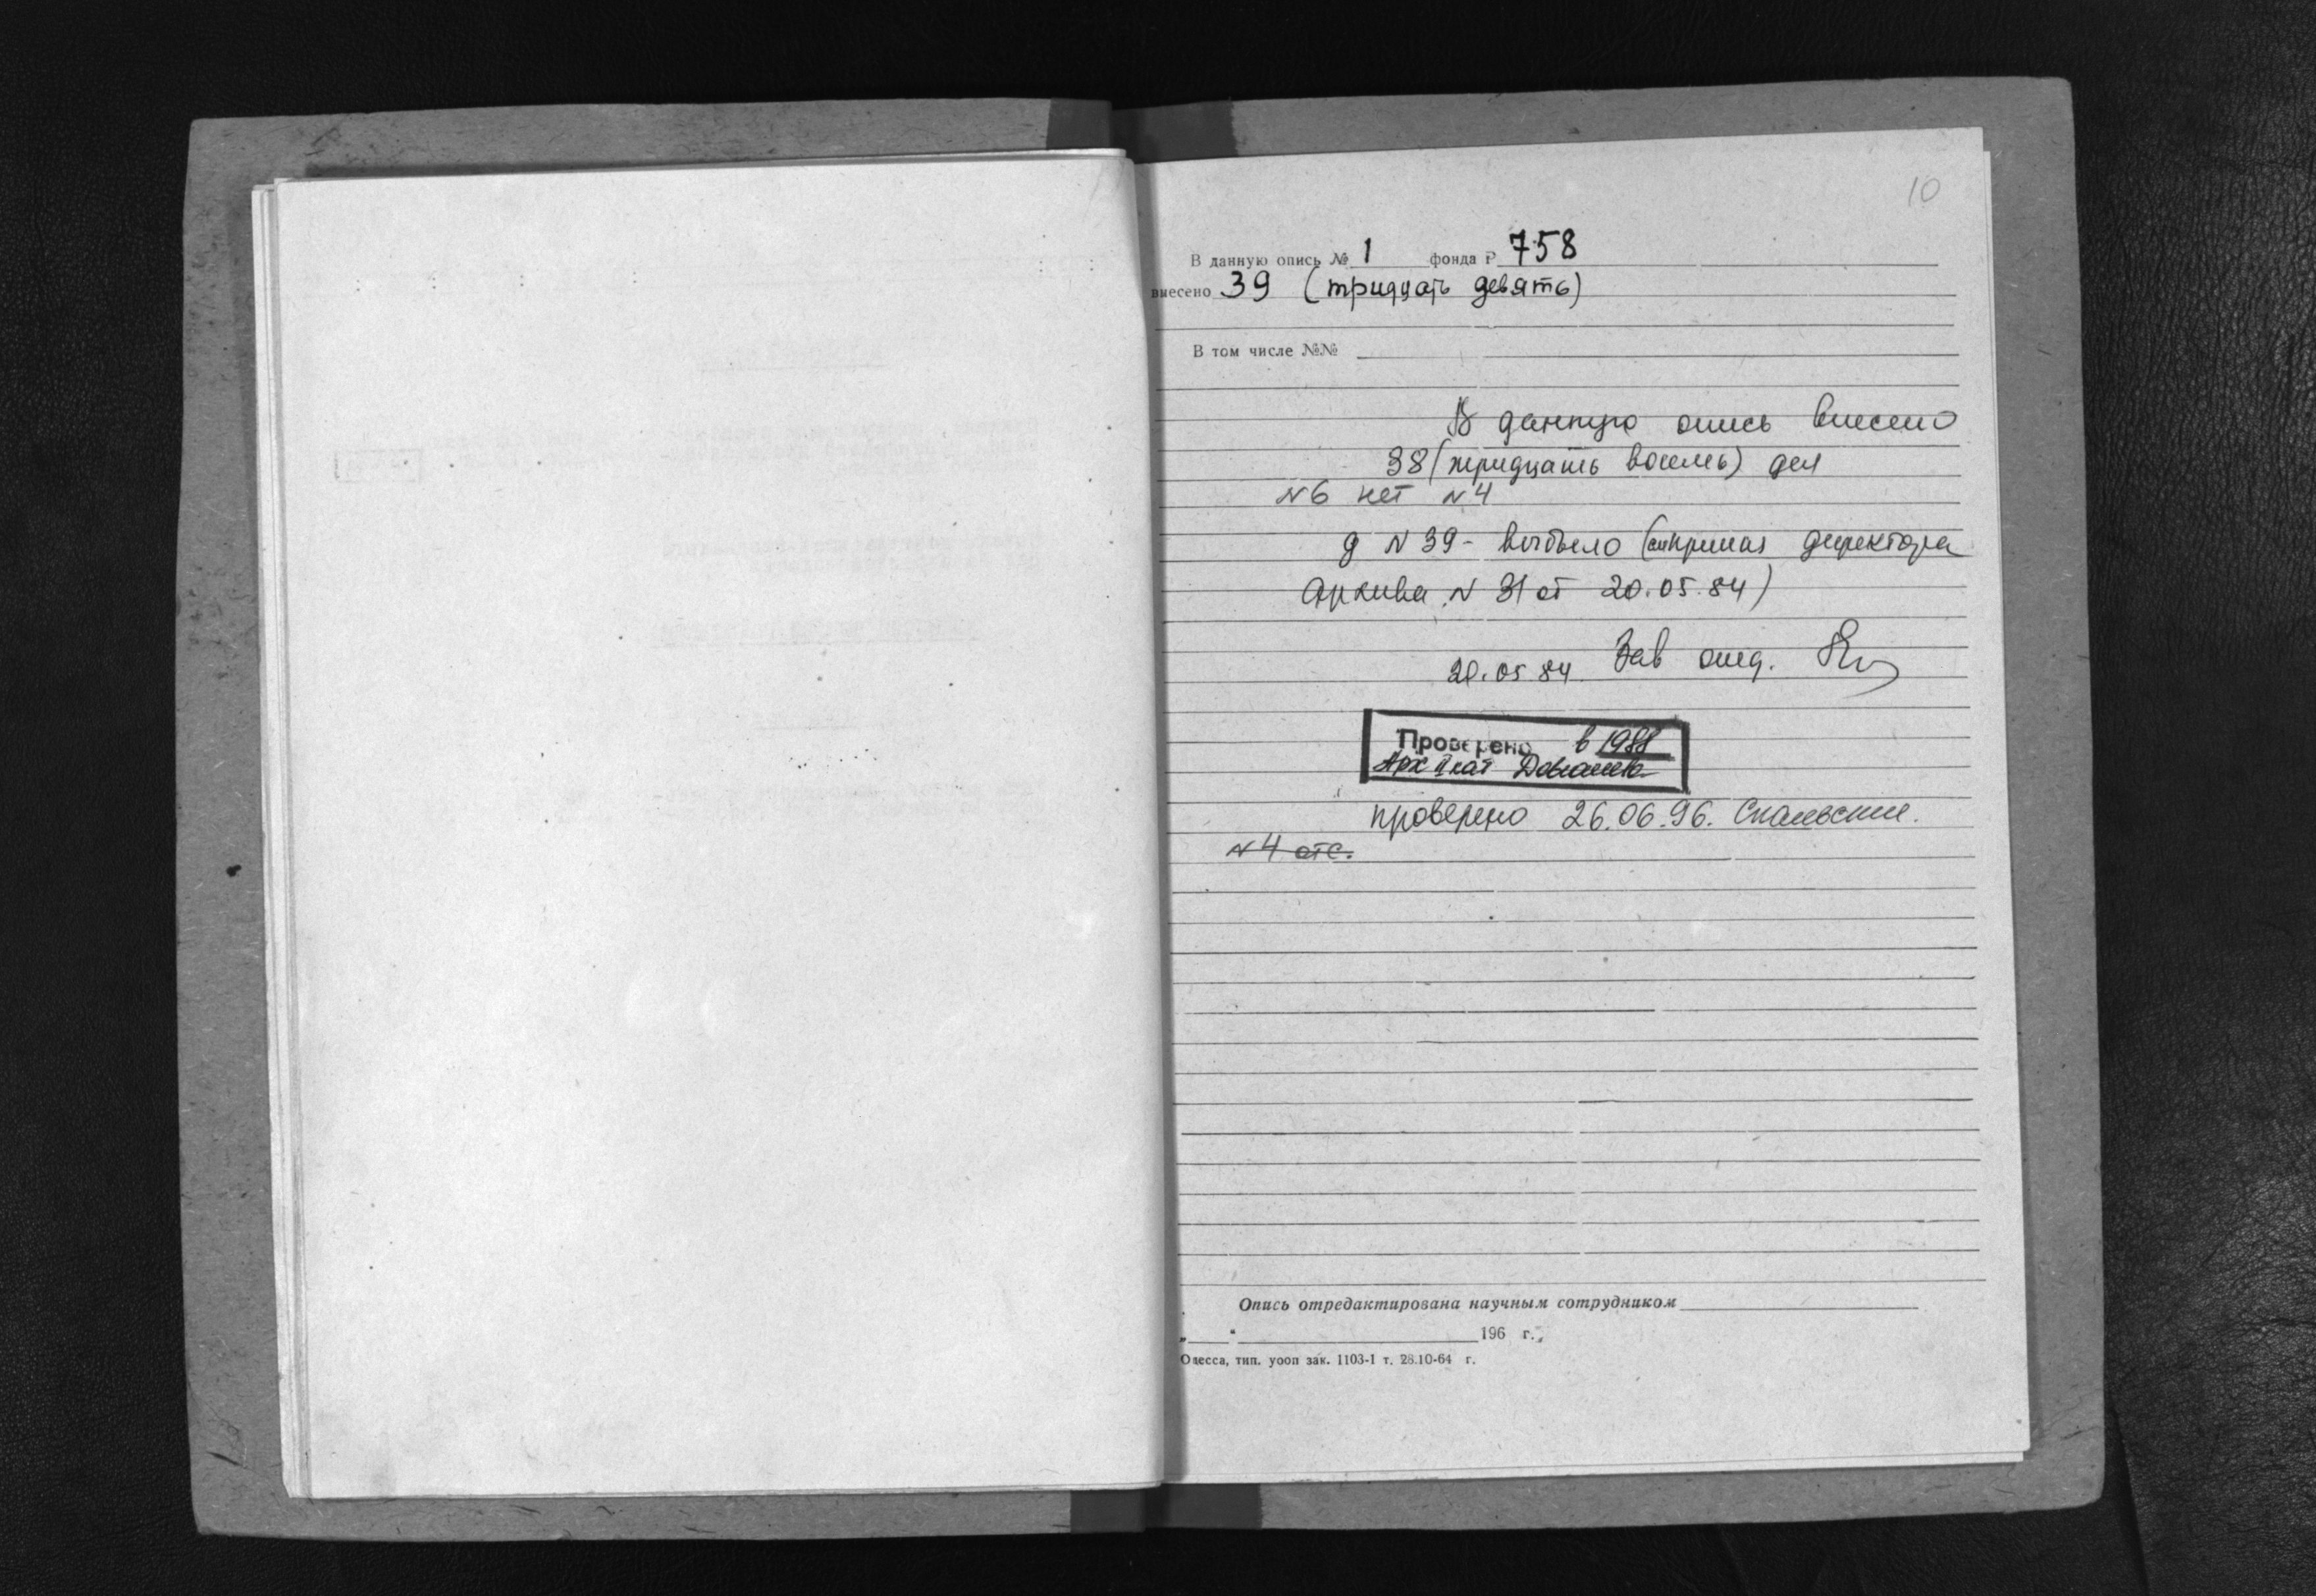 10
В данную опись № 1 фонда Р 758
внесено 39 (тридцать девять)
В том числе №№
В данную опись внесено
38 (тридцать восемь) дел
N6 нет N4
д N 39 - выбыло (см приказ директора
Архива N 31 от 20.05.84)
20.05.84 Зав отд.
Проверено в 1988
Арх II кат
проверено 26.06.96.
N4 отс.
Опись отредактирована научным сотрудником
„ “ 196 г.
Одесса, тип. уооп зак. 1103-1 т. 28.10-64 г.